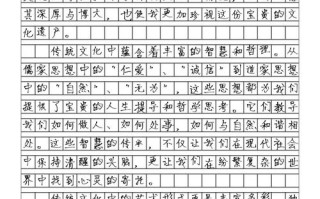 其深厚与博大，也使我更加珍视这份宝贵的文
化遗产。
传统文化中蕴含着丰富的智慧和哲理。从
儒家思想中的“仁爱”、“诚信”到道家思想中
的“自然”、“无为”，这些思想都为我们
提供了宝贵的人生指导和哲学思考。它们教导
我们如何做人、如何处事，如何与自然和谐相
处。这些智慧的传承，不仅让我们在现代社会
中保持清醒的头脑，更让我们在纷繁复杂的世
界中找到心灵的寄托。
传统文化中的艺术形式更是丰富多彩，独